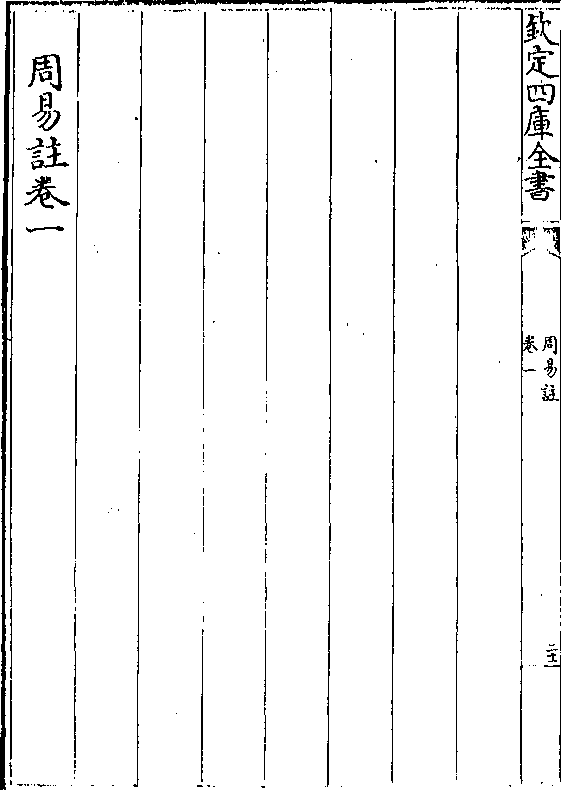 欽定四庫全書
周易註
卷一
周易註卷一